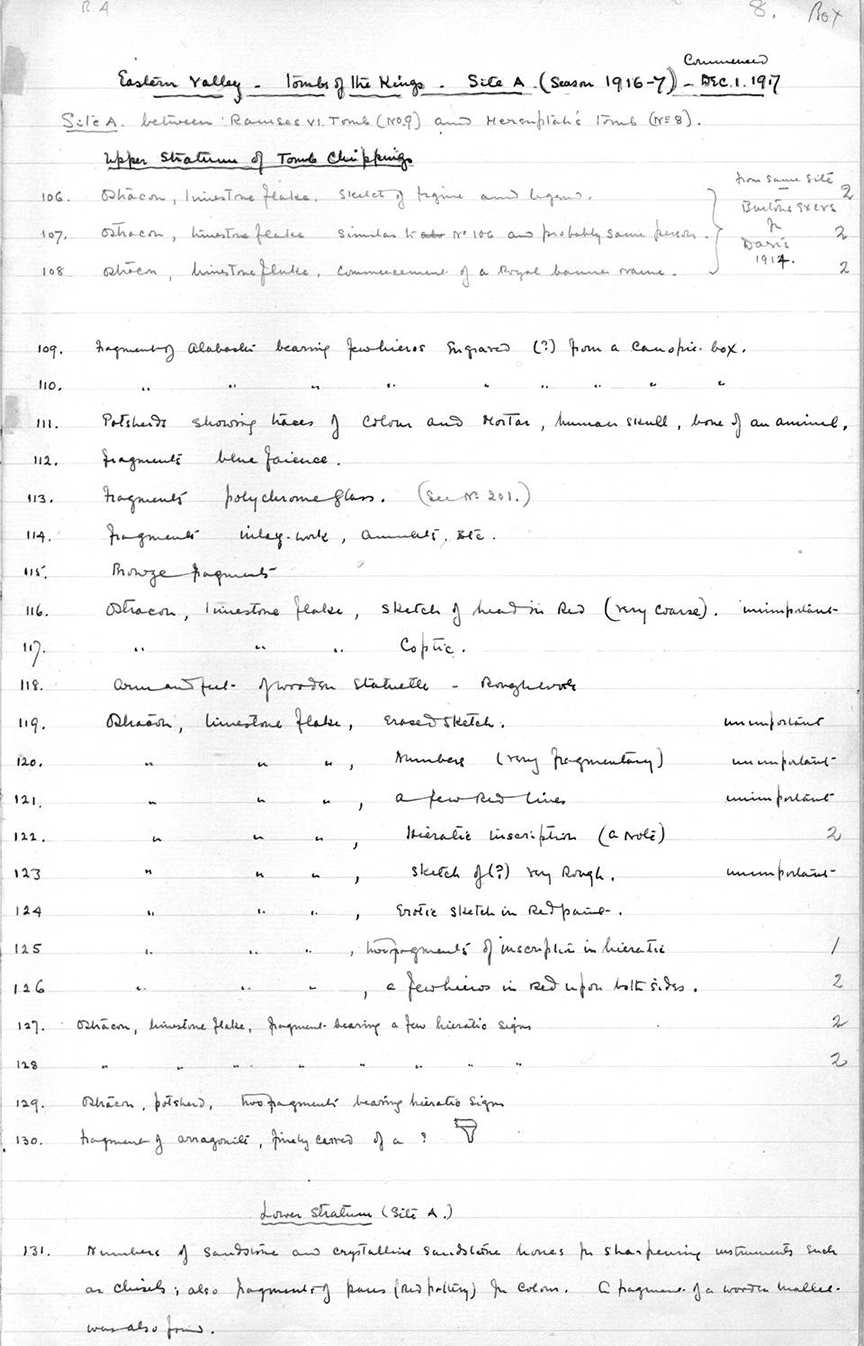 R A
8. Box
Commenced
Eastern Valley - Tombs of the Kings - Site A. (Season 1916-7) - DEC. 1. 1917
Site A. between Ramses VI. Tomb (No. 9) and Merenptah's Tomb (No 8).
Upper Stratum of Tomb Chippings
106. Ostracon, limestone flake. Sketch of figure and legend. 2
107. Ostracon, limestone flake similar to No 106 and probably same person. 2
108 Ostracon, limestone flake, commencement of a Royal banner name. 2
from same site
Burton's excvs
for
Davis
1914.
109. Fragment of Alabaster bearing few hieros Engraved (?) from a Canopic-box.
110. " " " " " " " " "
111. Potsherds showing traces of colour and Mortar, human skull, bone of an animal.
112. fragments blue faience.
113. Fragments polychrome glass. (See No. 201.)
114. fragments inlay-work, amulets, etc.
115. Bronze fragments
116. Ostracon, limestone flake, sketch of head in Red (very coarse). unimportant
117. " " " Coptic.
118. Arm and feet of wooden statuette - Rough work
119. Ostracon, limestone flake, Erased sketch. unimportant
120. " " " , Numbers (very fragmentary) unimportant
121. " " " , a few Red lines unimportant
122. " " " , Hieratic inscription (a note) 2
123 " " " , sketch of (?) very Rough. unimportant
124 " " " , Erotic sketch in Red paint.
125 " " " , two fragments of inscription in hieratic 1
126 " " " , a few hieros in Red upon both sides. 2
127. Ostracon, limestone flake, fragment bearing a few hieratic signs 2
128 " " " " " " " " 2
129. Ostracon, potsherd, two fragments bearing hieratic signs
130. Fragment of arragonite, finely carved of a ?
Lower Stratum (Site A.)
131. Numbers of sandstone and crystalline sandstone hones for sharpening instruments such
as chisels; also fragments of pans (Red pottery) for colour. A fragment of a wooden mallet
was also found.